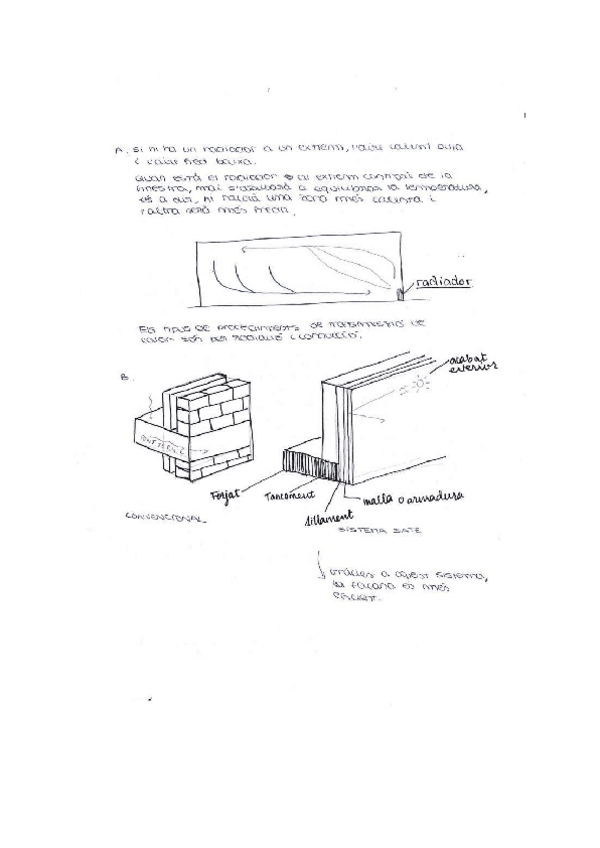 A. Si hi ha un radiador a un extrem, l'aire calent puja
i l'aire fred baixa.
Quan està el radiador al extrem contrari de la
finestra, mai s'acabarà d'equilibrar la temperatura,
és a dir, hi haurà una zona més calenta i
l'altra serà més freda.
radiador
Els tipus de procediments de transmissió de
calor són per radiació i convecció.
B.
acabat
exterior
Forjat
Tancament
malla o armadura
aïllament
CONVENCIONAL
SISTEMA SATE
Gràcies a aquest sistema,
la façana és més